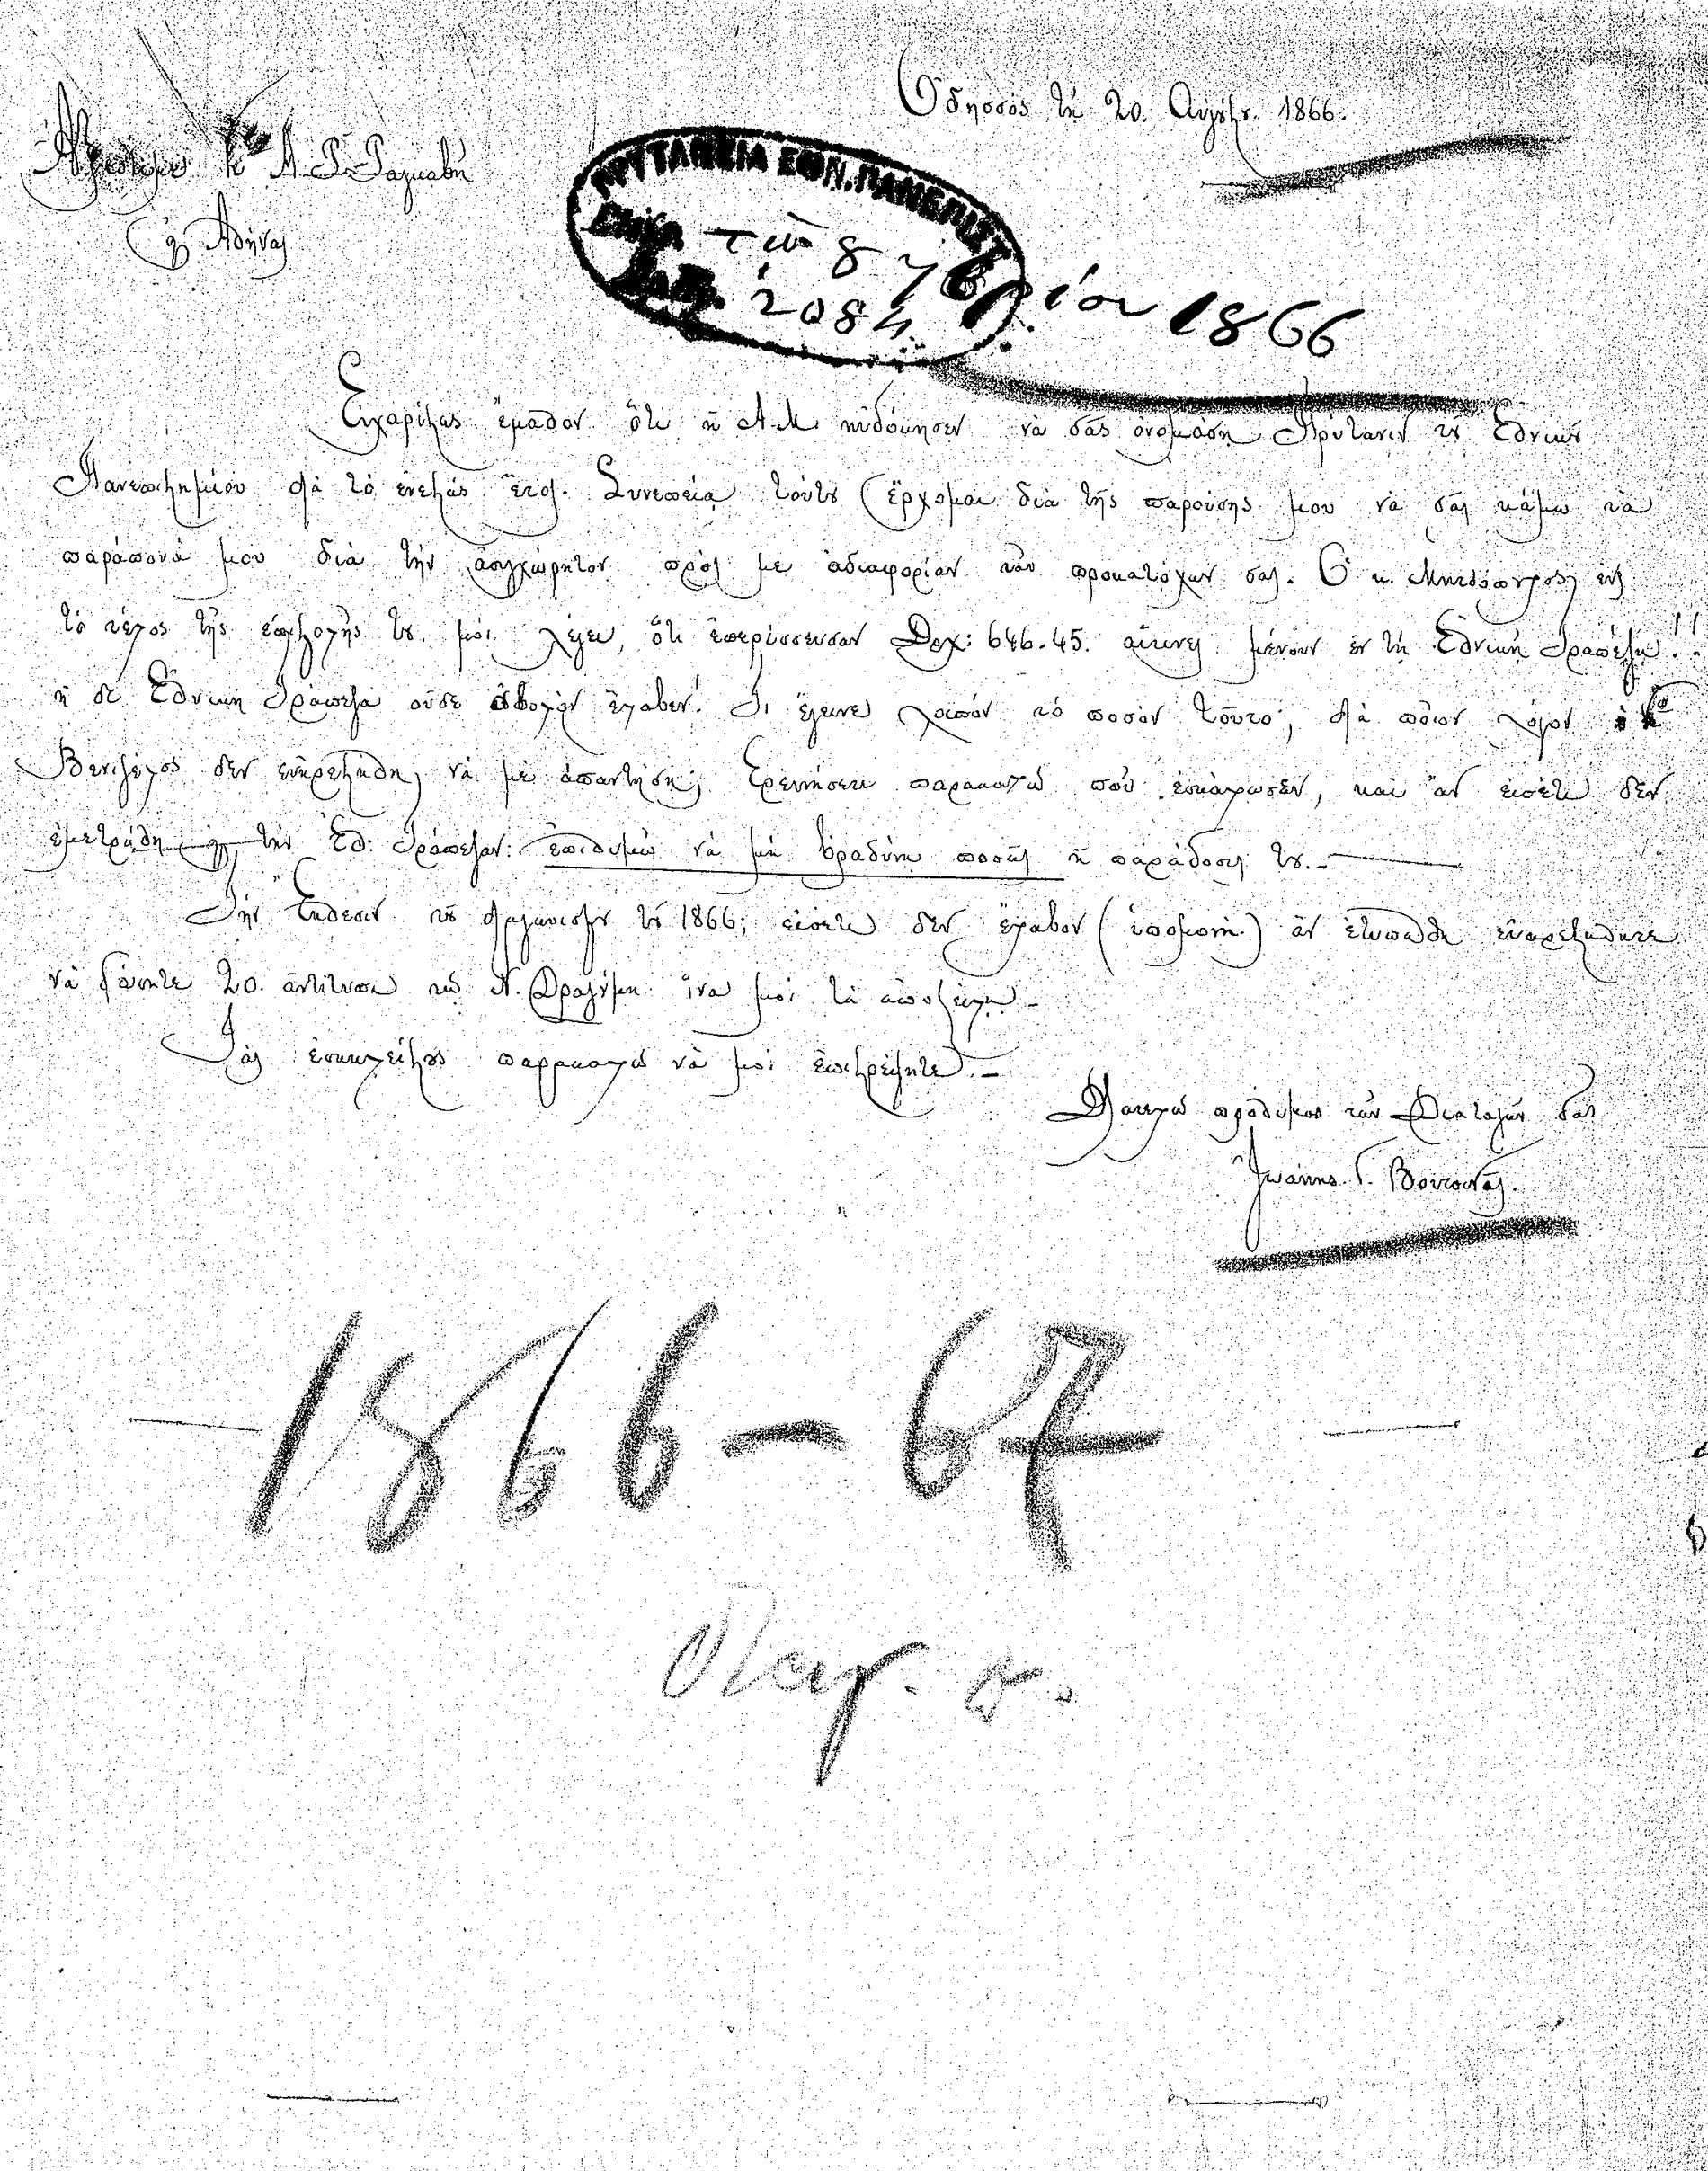 Ὀδησσὸς τῇ 20. Αὐγούστ. 1866.
Ἀξιότιμε κ. Α. Ρ. Ραγκαβῆ
εἰς Ἀθήνας
ΠΡΥΤΑΝΕΙΑ ΕΘΝ. ΠΑΝΕΠΙΣΤ
τῇ 8 7βρίου 1866
2084
Εὐχαρίστως ἔμαθον ὅτι ἡ Α.Μ. ηὐδόκησεν νὰ σᾶς ὀνομάσῃ Πρύτανιν τοῦ Ἐθνικοῦ
Πανεπιστημίου διὰ τὸ ἐνεστὼς ἔτος. Συνεπείᾳ τούτου ἔρχομαι διὰ τῆς παρούσης μου νὰ σᾶς κάμω τὰ
παράπονά μου διὰ τὴν ἀσυγχώρητον πρός με ἀδιαφορίαν τῶν προκατόχων σας. Ὁ κ. εἰς
τὸ τέλος τῆς ἐπιστολῆς του μοὶ λέγει, ὅτι ἐπερίσσευσαν Δρχ: 646.45. αἵτινες μένουν ἐν τῇ Ἐθνικῇ Τραπέζῃ!!
ἡ δὲ Ἐθνικὴ Τράπεζα οὐδὲ ὀβολὸν ἔλαβεν! Τί ἔγεινε λοιπὸν τὸ ποσὸν τοῦτο; διὰ ποῖον λόγον ὁ κος
Βενιζέλος δὲν εὐηρεστήθη νὰ μὲ ἀπαντήσῃ; Ἐρευνήσετε παρακαλῶ ποῦ ἐσκάλωσεν, καὶ ἂν εἰσέτι δὲν
ἐμετρήθη εἰς τὴν Ἐθ: Τράπεζαν: ἐπιθυμῶ νὰ μὴ βραδύνῃ ποσῶς ἡ παράδοσίς του.—
Τὴν Ἔκθεσιν τοῦ διαγωνισμοῦ τοῦ 1866; εἰσέτι δὲν ἔλαβον (ὑπομονή.) ἂν ἐτυπώθη εὐαρεστηθῆτε
νὰ δώσητε 20. ἀντίτυπα τῷ Ν. Δραγούμῃ ἵνα μοὶ τὰ ἀποστείλῃ.—
Τὰς ἐσωκλείστους παρακαλῶ νὰ μοὶ ἐπιστρέψητε.—
Διατελῶ πρόθυμος τῶν Διαταγῶν σας
Ἰωάννης. Γ. Βουτσινᾶς.
1866-67